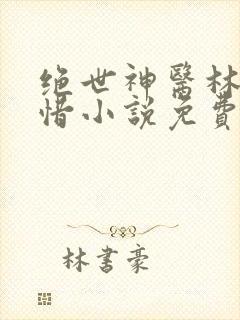 绝世神醫林
惜小說免費
林書豪